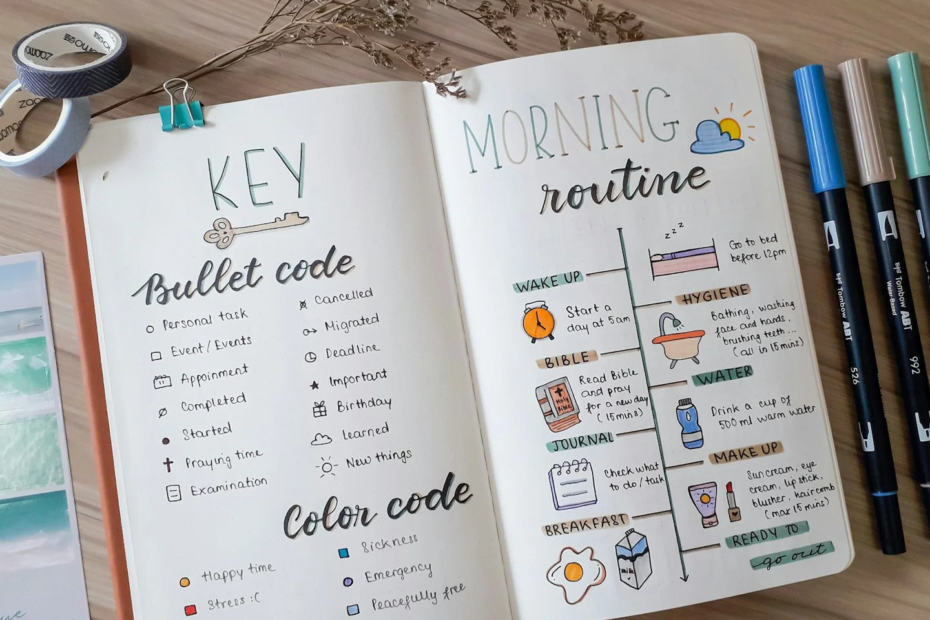 KEY
Bullet code
Personal task
Event/Events
Appoinment
Completed
Started
Praying time
Examination
Cancelled
Migrated
Deadline
Important
Birthday
Learned
New things
Color code
Happy time
Stress :(
Sickness
Emergency
Peacefully free
MORNING
routine
z z z
Go to bed
before 12pm
WAKE UP
Start a
day at 5am
HYGIENE
Bathing, washing
face and hands,
brushing teeth...
(all in 15 mins)
BIBLE
Holy
Bible
Read Bible
and pray
for a new day
(15mins)
WATER
Drink a cup of
500 ml warm water
JOURNAL
Check what
to do/task
MAKE UP
Suncream, eye
cream, lipstick,
blusher, haircomb
(max 15 mins)
BREAKFAST
READY TO
go out
Tombow ABT
526
Tombow ABT
Water Based
992